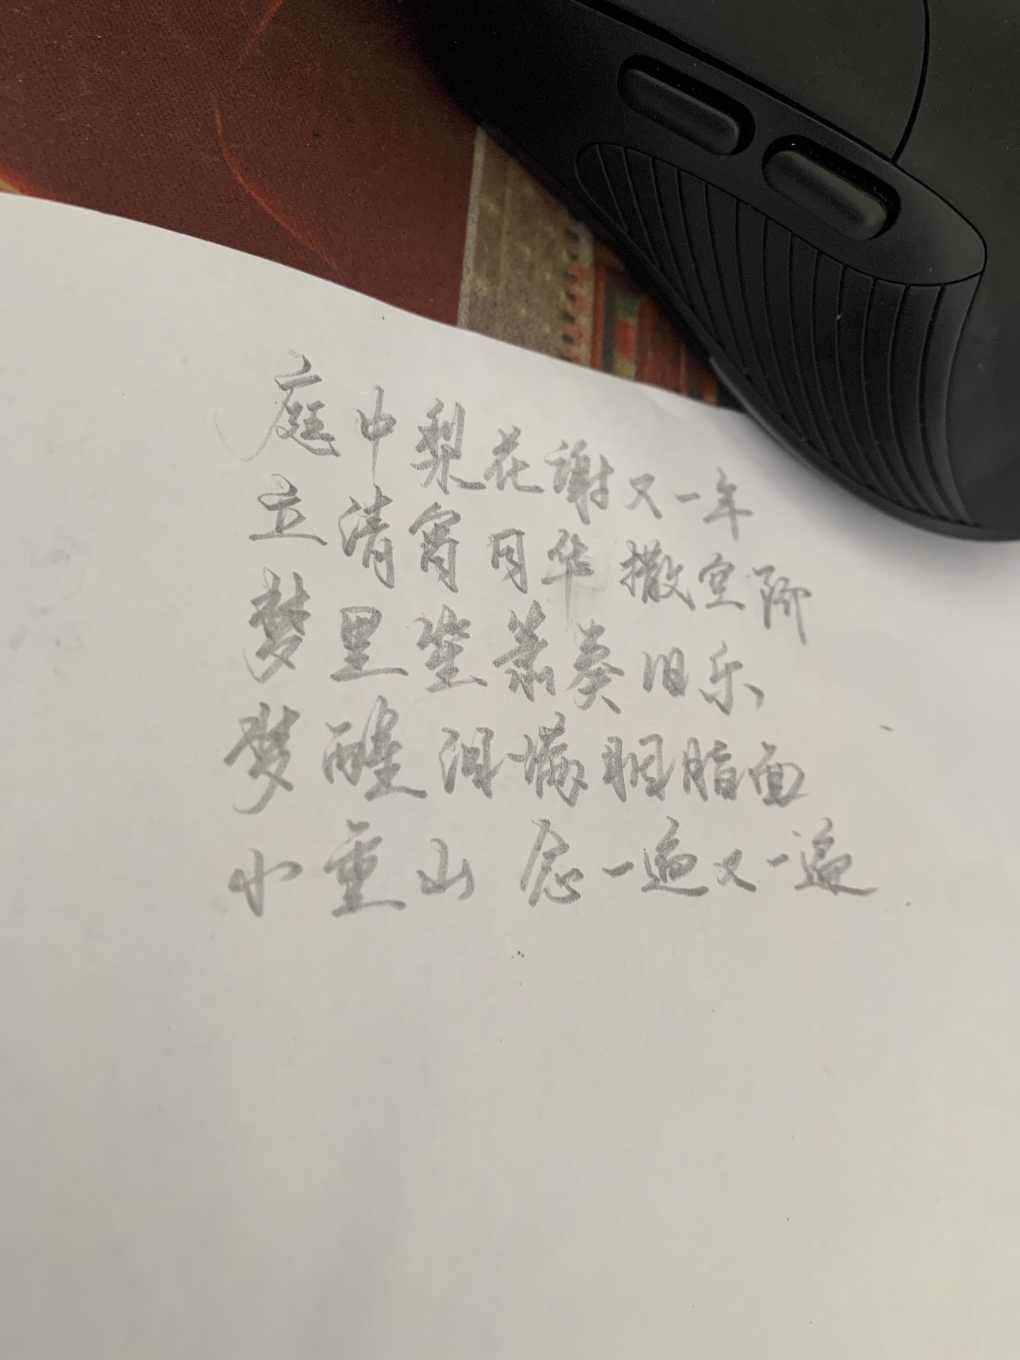 庭中梨花谢又一年
立清宵月华撒空阶
梦里笙箫奏旧乐
梦醒泪满胭脂面
小重山 念一遍又一遍